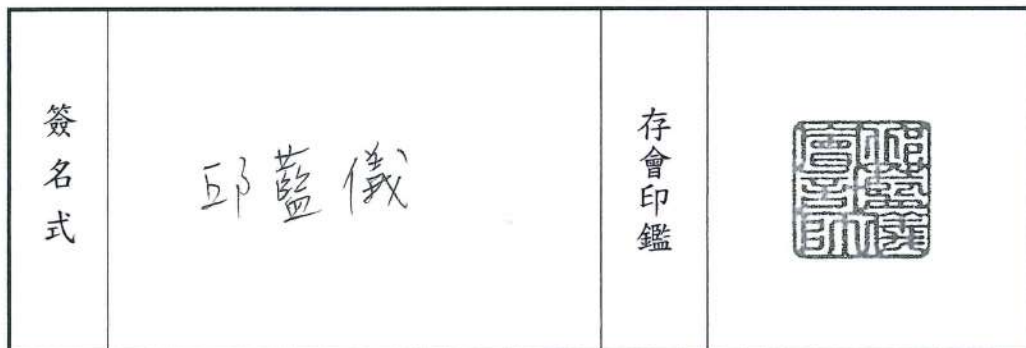 簽名式
邱藍儀
存會印鑑
邱藍儀
會計師